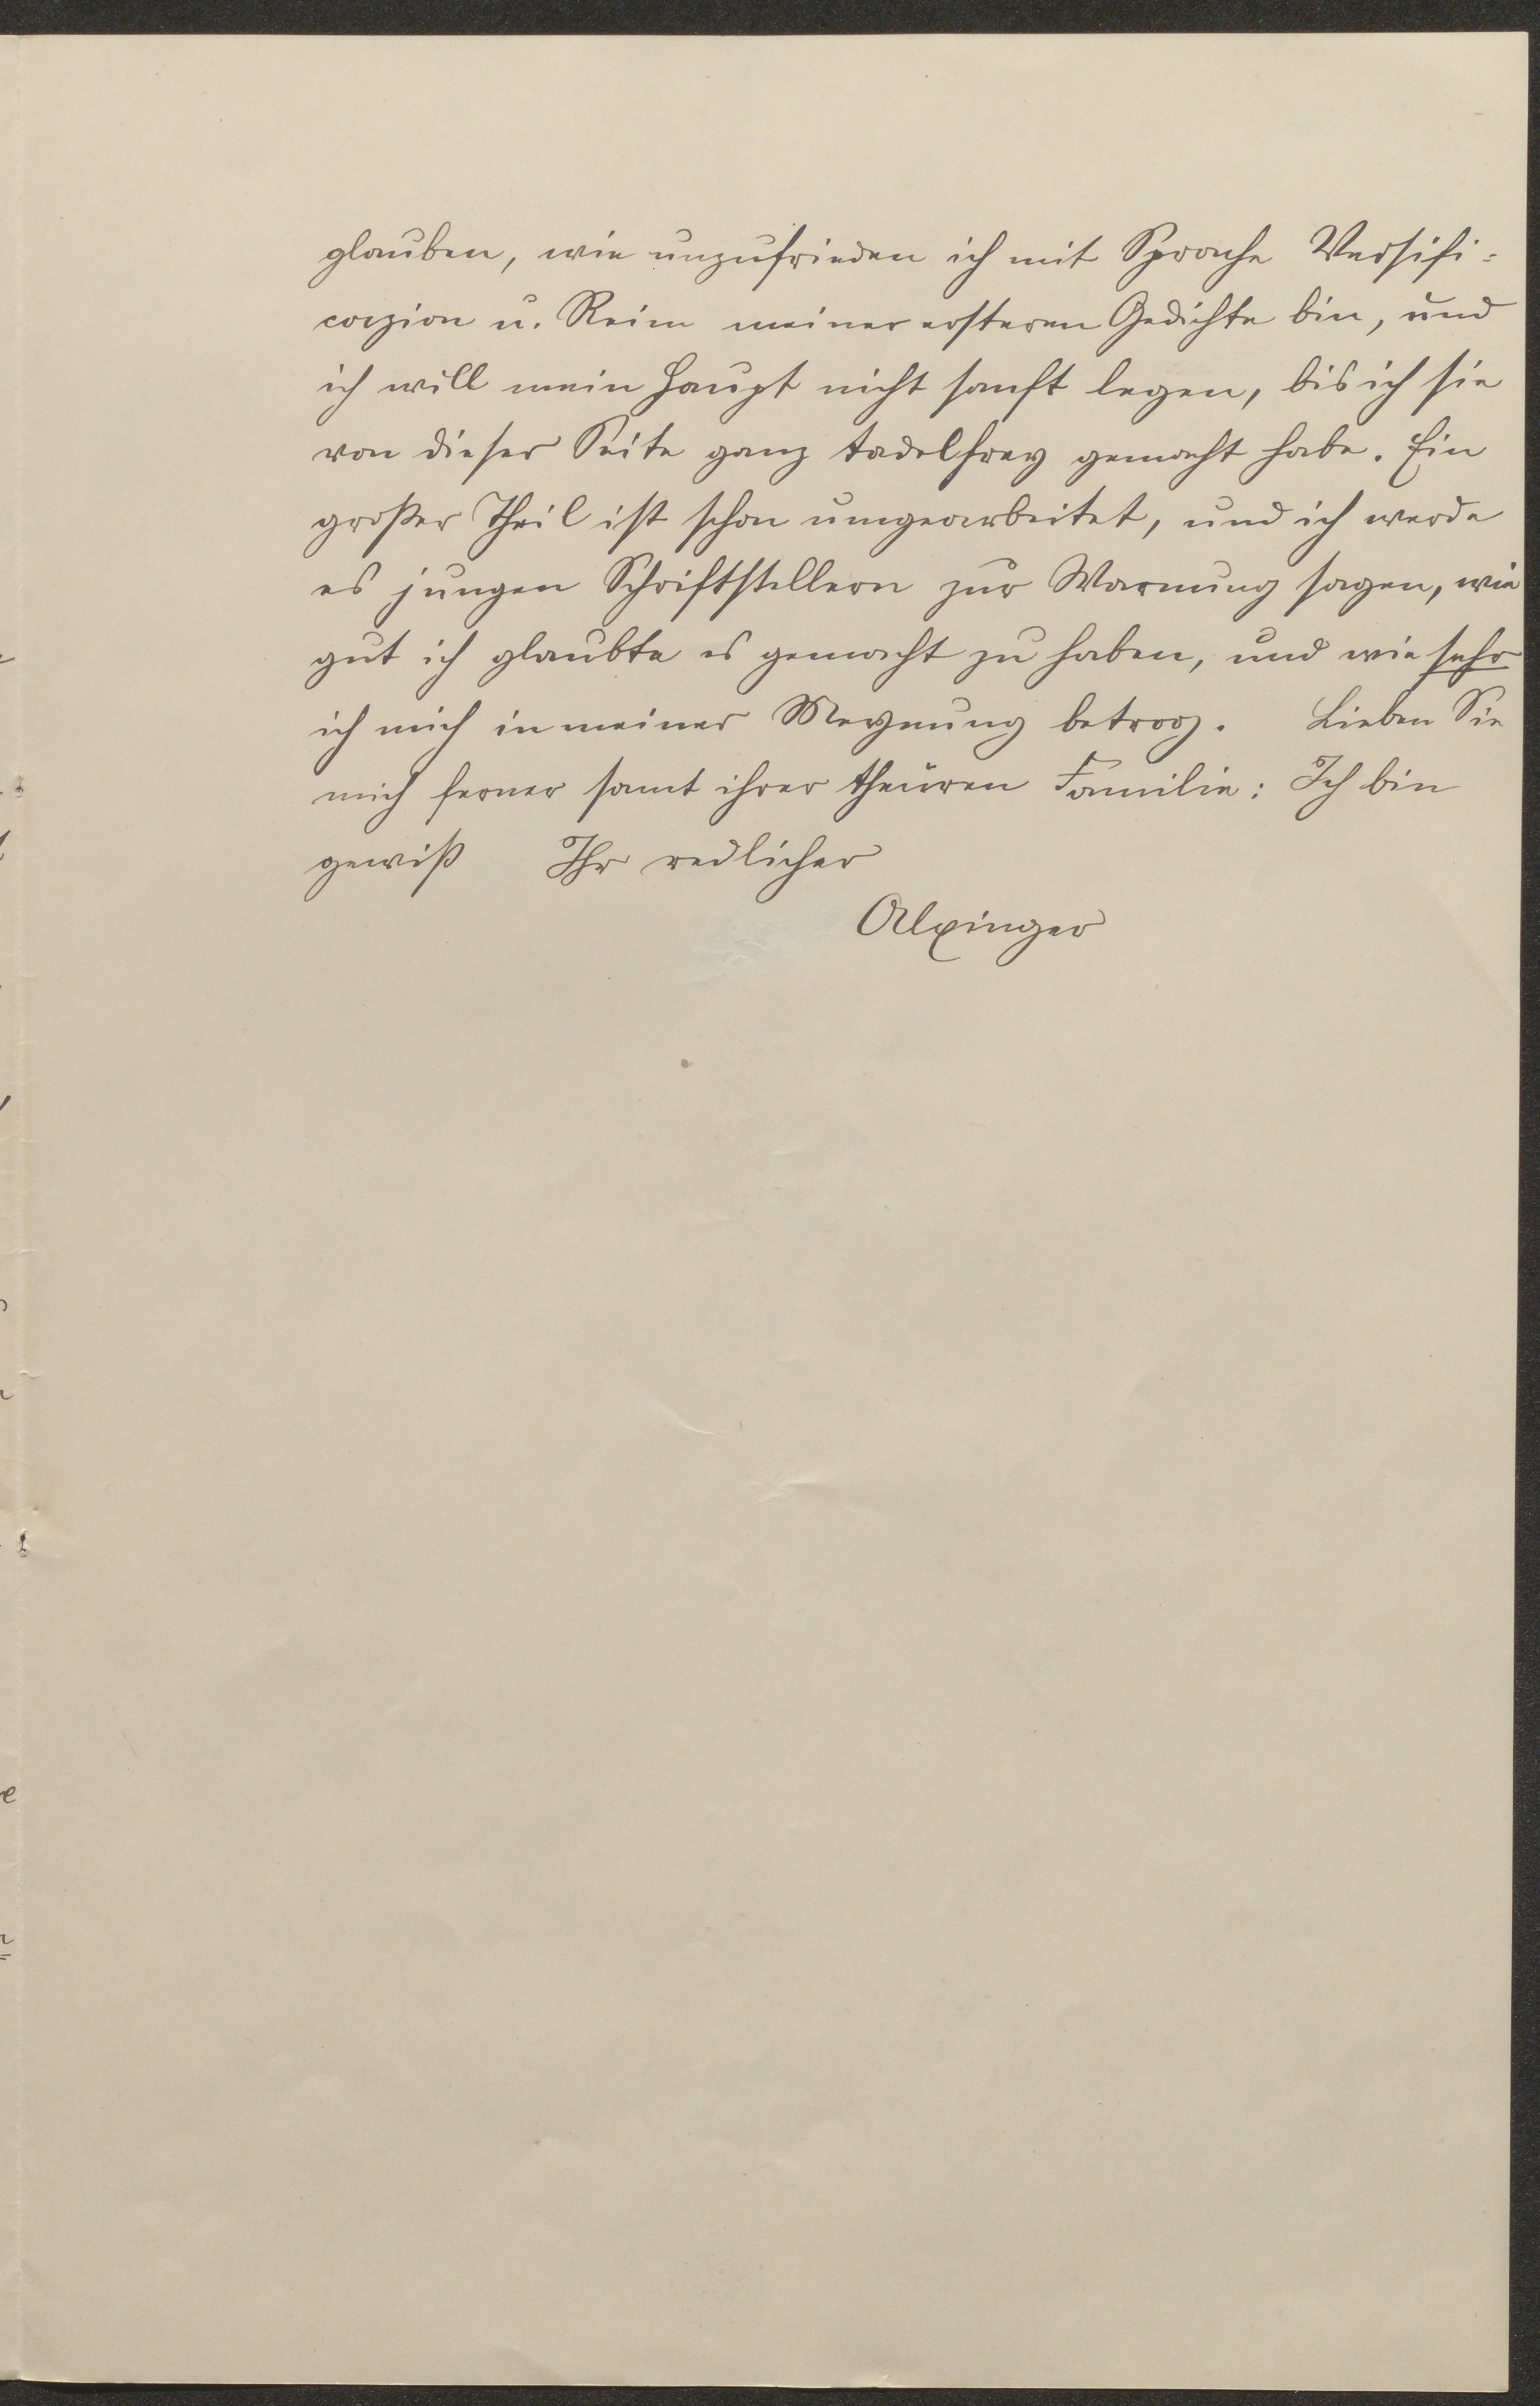 glauben, wie unzufrieden ich mit Sprache Versifi=
cazion u. Reim meiner ersteren Gedichte bin, und
ich will mein Haupt nicht sanft legen, bis ich sie
von dieser Seite ganz tadelfrey gemacht habe. Ein
großer Theil ist schon umgearbeitet, und ich werde
es jungen Schriftstellern zur Warnung sagen, wie
gut ich glaubte es gemacht zu haben, und wie sehr
ich mich in meiner Meynung betrog. Lieben Sie
mich ferner samt ihrer theuren Familie: Ich bin
gewiß Ihr redlicher
Alxinger